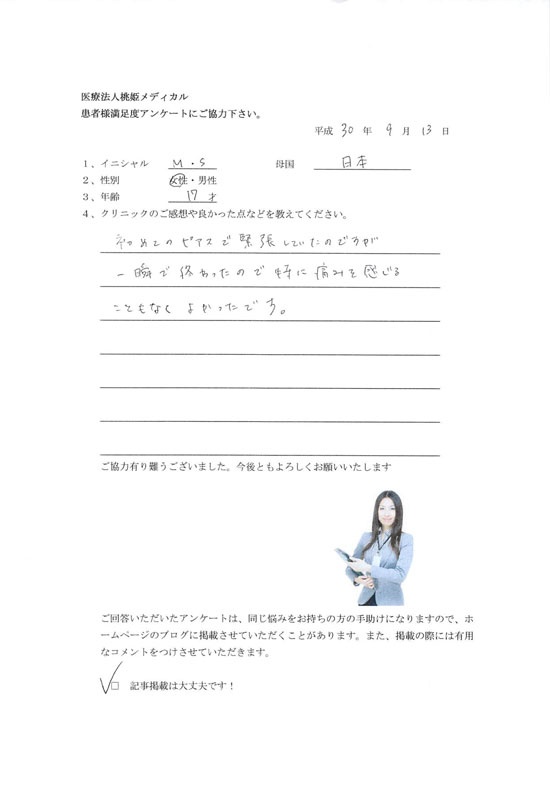 医療法人桃姫メディカル
患者様満足度アンケートにご協力下さい。
平成 30 年 9 月 13 日
１、イニシャル M・S 母国 日本
２、性別 女性・男性
３、年齢 17 才
４、クリニックのご感想や良かった点などを教えてください。
初めてのピアスで緊張していたのですが
一瞬で終わったので特に痛みを感じる
こともなくよかったです。
ご協力有り難うございました。今後ともよろしくお願いいたします
ご回答いただいたアンケートは、同じ悩みをお持ちの方の手助けになりますので、ホ
ームページのブログに掲載させていただくことがあります。また、掲載の際には有用
なコメントをつけさせていただきます。
□ 記事掲載は大丈夫です！